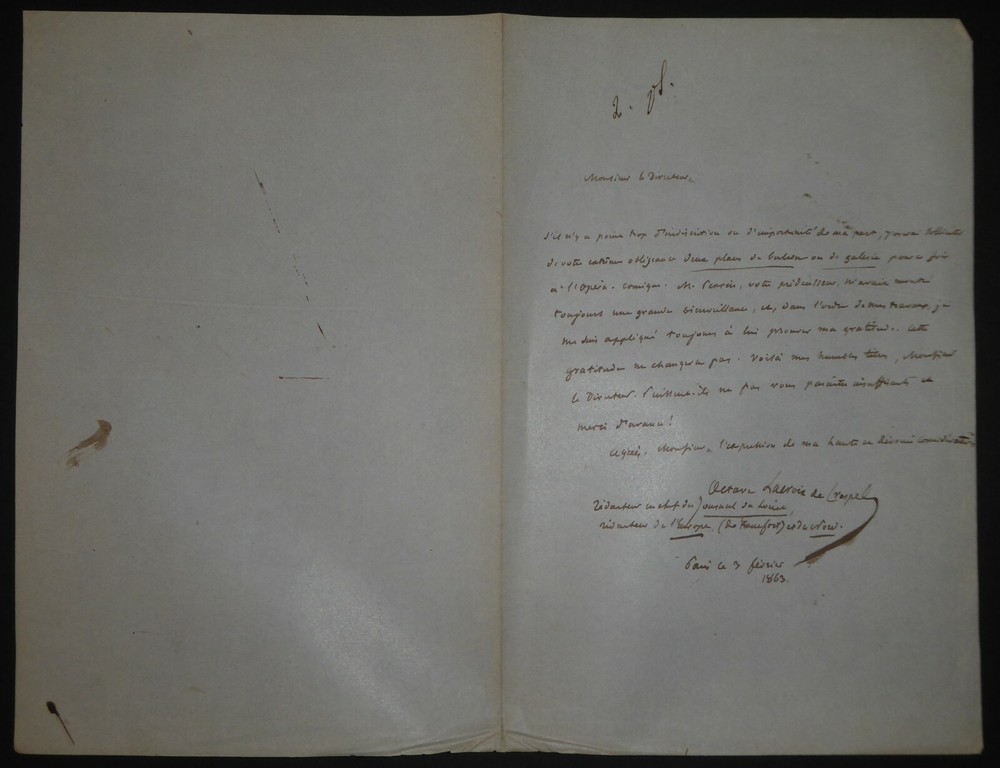 2. pl.
Monsieur le Directeur,
S'il n'y a point trop d'indiscrétion ou d'importunité de ma part, j'oserai solliciter
de votre extrême obligeance deux places de balcon ou de galerie pour ce soir
à l'Opéra-Comique. M. Perrin, votre prédécesseur, m'avait montré
toujours une grande bienveillance, et, dans l'ordre de mes travaux, je
me suis appliqué toujours à lui prouver ma gratitude. Cette
gratitude ne changera pas. Voilà mes humbles titres, Monsieur
le Directeur. Puissent-ils ne pas vous paraître insuffisants et
merci d'avance!
Agréez, Monsieur, l'expression de ma haute et dévouée considération
Octave Lacroix de Crespel
rédacteur en chef du Journal du
rédacteur de l'Europe (de Francfort) et du Nord.
Paris ce 3 février
1863.